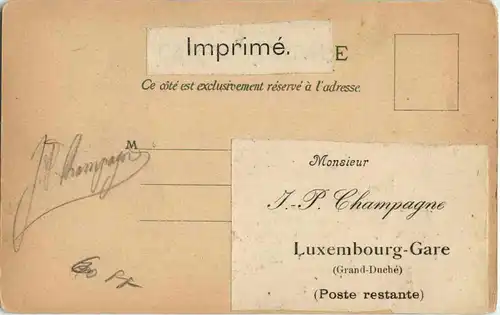 Imprimé. E
Ce côté est exclusivement réservé à l'adresse.
M
Monsieur
J.-P. Champagne
Luxembourg-Gare
(Grand-Duché)
(Poste restante)
JP Champagne